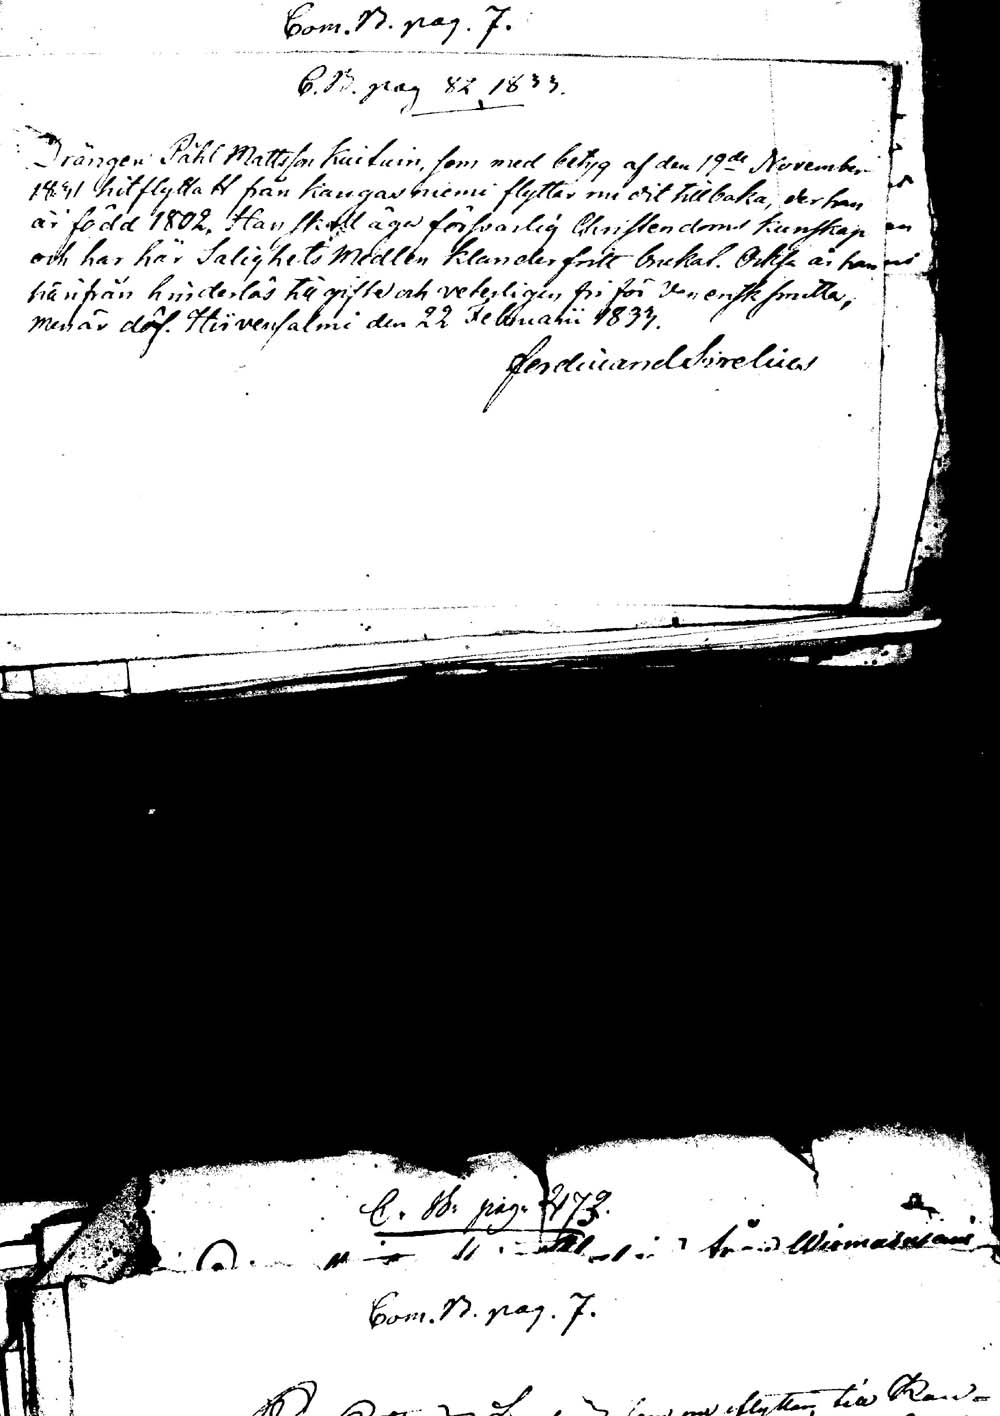 Com. B. pag. 7.
C. B. pag 82 1833.
Drängen Påhl Mattsson Kuituin, som med betyg af den 19de November
1831 hitflyttatt från Kangasniemi flyttar nu dit tillbaka, der han
är född 1802. Han skall äga försvarlig Christendoms kunskap
och har här Salighets Medlen klanderfritt brukat. Också är han
härifrån hinderlös till gifte och veterligen fri för Venerisk smitta,
men är döf. Hirvensalmi den 22 Februarii 1833.
Ferdinand Sirelius
C. B. pag. 473.
från Wirmasniemi
Com. B. pag. 7.
som nu aflyttar till Kan-